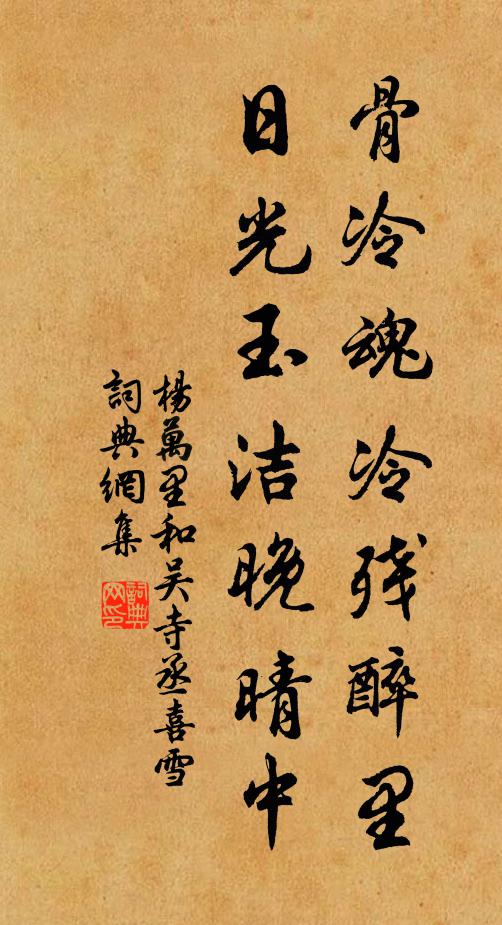 骨冷魂冷残醉里
日光玉洁晚晴中
楊萬里和吴寺丞喜雪
詞典網集
詞典网印